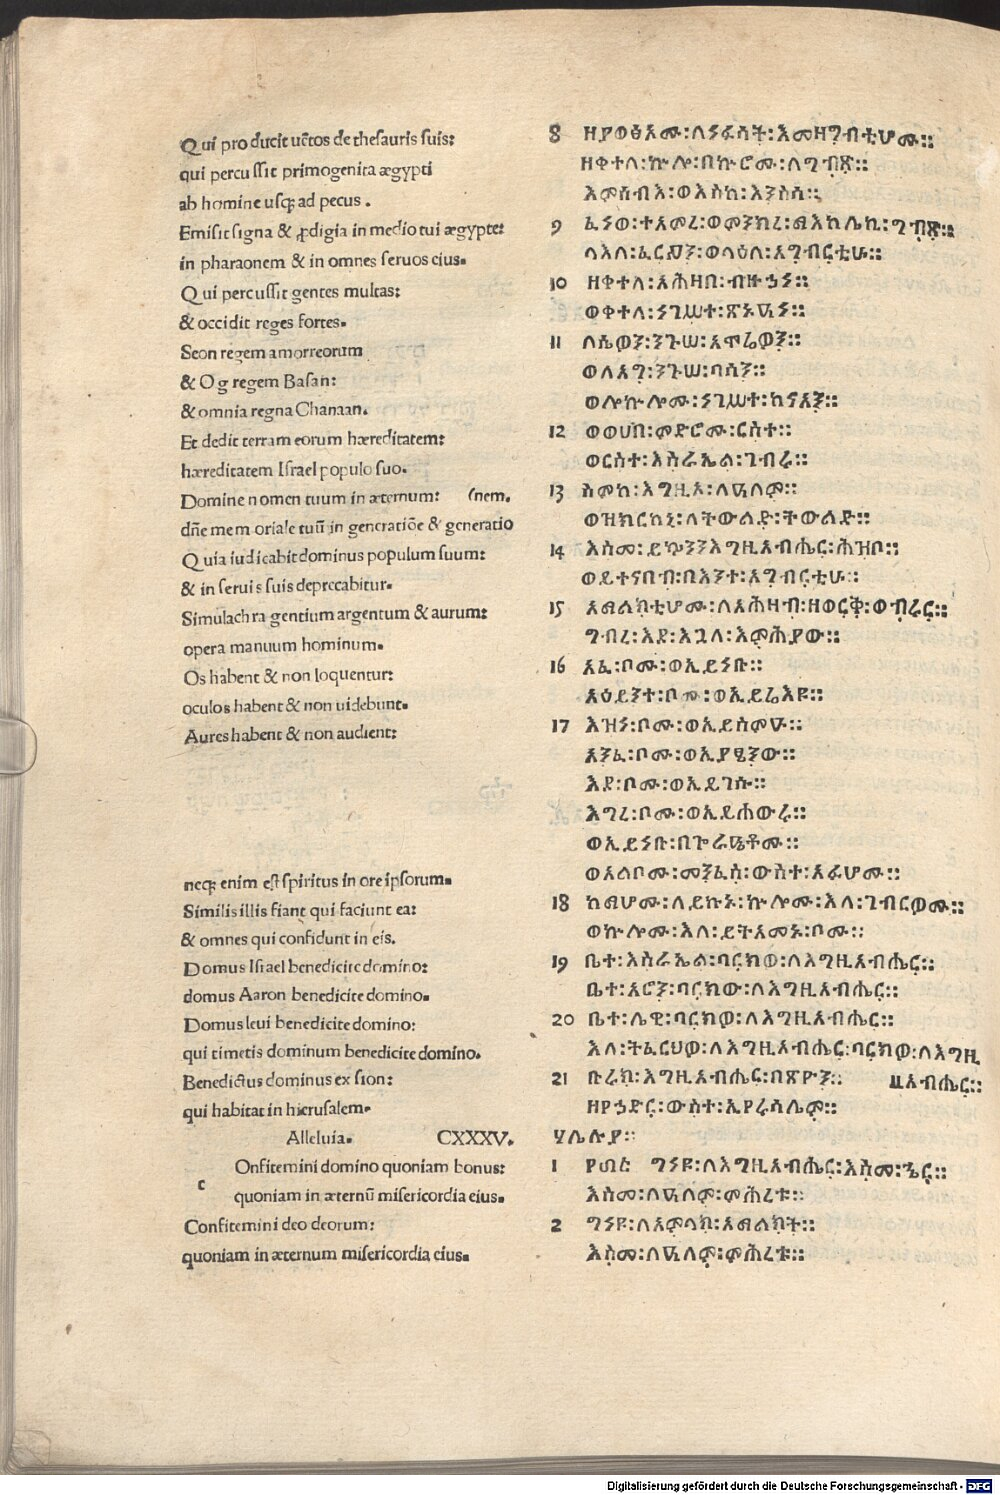 Qui producit uẽtos de thesauris suis:
qui percussit primogenita ægypti
ab homine usq; ad pecus.
Emisit signa & ꝓdigia in medio tui ægypte:
in pharaonem & in omnes seruos eius.
Qui percussit gentes multas:
& occidit reges fortes.
Seon regem amorreorum
& Og regem Basan:
& omnia regna Chanaan.
Et dedit terram eorum hæreditatem:
hæreditatem Israel populo suo.
Domine nomen tuum in æternum: (nem.
dñe memoriale tuũ in generatiõe & generatio
Quia iudicabit dominus populum suum:
& in seruis suis deprecabitur.
Simulachra gentium argentum & aurum:
opera manuum hominum.
Os habent & non loquentur:
oculos habent & non uidebunt.
Aures habent & non audient:
neq; enim est spiritus in ore ipsorum.
Similis illis fiant qui faciunt ea:
& omnes qui confidunt in eis.
Domus Israel benedicite domino:
domus Aaron benedicite domino.
Domus leui benedicite domino:
qui timetis dominum benedicite domino.
Benedictus dominus ex sion:
qui habitat in hierusalem.
Alleluia. CXXXV.
c Onfitemini domino quoniam bonus:
quoniam in æternũ misericordia eius.
Confitemini deo deorum:
quoniam in æternum misericordia eius.
8 ዘያወፅአሙ፡ለነፋሳት፡እመዘግብቲሆሙ፡፡
ዘቀተለ፡ኵሎ፡በኵሮሙ፡ለግብጽ፡፡
እምሰብእ፡ወእስከ፡እንስሳ፡፡
9 ፈነወ፡ተአምረ፡ወመንክረ፡ማእከሌኪ፡ግብጽ፡፡
ላእለ፡ፈርዖን፡ወላዕለ፡አግብርቲሁ፡፡
10 ዘቀተለ፡አሕዛበ፡ብዙኃነ፡፡
ወቀተለ፡ነገሥተ፡ጽኑዓነ፡፡
11 ለሴዎን፡ንጉሠ፡አሞሬዎን፡፡
ወለአግ፡ንጉሠ፡ባሳን፡፡
ወለኵሎሙ፡ነገሥተ፡ከናአን፡፡
12 ወወሀበ፡ምድሮሙ፡ርስተ፡፡
ወርስተ፡እስራኤል፡ገብሩ፡፡
13 ስምከ፡እግዚኦ፡ለዓለም፡፡
ወዝክርከኒ፡ለትውልድ፡ትውልድ፡፡
14 እስመ፡ይኴንንእግዚአብሔር፡ሕዝቦ፡፡
ወይተናበብ፡በእንተ፡አግብርቲሁ፡፡
15 አማልክቲሆሙ፡ለአሕዛብ፡ዘወርቅ፡ወብሩር፡፡
ግብረ፡እደ፡እጓለ፡እምሕያው፡፡
16 አፈ፡ቦሙ፡ወኢይነቡ፡፡
አዕይንተ፡ቦሙ፡ወኢይሬእዩ፡፡
17 እዝነ፡ቦሙ፡ወኢይሰምዑ፡፡
አንፈ፡ቦሙ፡ወኢያፄንው፡፡
እደ፡ቦሙ፡ወኢይገሱ፡፡
እግረ፡ቦሙ፡ወኢይሐውሩ፡፡
ወኢይነቡ፡በጉራዔቶሙ፡፡
ወአልቦሙ፡መንፈስ፡ውስተ፡አፉሆሙ፡፡
18 ከማሆሙ፡ለይኩኑ፡ኵሎሙ፡እለ፡ገብርዎሙ፡፡
ወኵሎሙ፡እለ፡ይትአመኑ፡ቦሙ፡፡
19 ቤተ፡እስራኤል፡ባርክወ፡ለእግዚአብሔር፡፡
ቤተ፡አሮን፡ባርክው፡ለእግዚአብሔር፡፡
20 ቤተ፡ሌዊ፡ባርክዎ፡ለእግዚአብሔር፡፡
እለ፡ትፈርህዎ፡ለእግዚአብሔር፡ባርክዎ፡ለእግዚ
21 ቡሩክ፡እግዚአብሔር፡በጽዮን፡፡ ⵊአብሔር፡፡
ዘየኃድር፡ውስተ፡ኢየሩሳሌም፡፡
ሃሌሉያ፡፡
1 ግነዩ፡ለእግዚአብሔር፡እስመ፡ኄር፡፡
እስመ፡ለዓለም፡ምሕረቱ፡፡
2 ግነዩ፡ለአምላክ፡አማልክት፡፡
እስመ፡ለዓለም፡ምሕረቱ፡፡
Digitalisierung gefördert durch die Deutsche Forschungsgemeinschaft - DFG